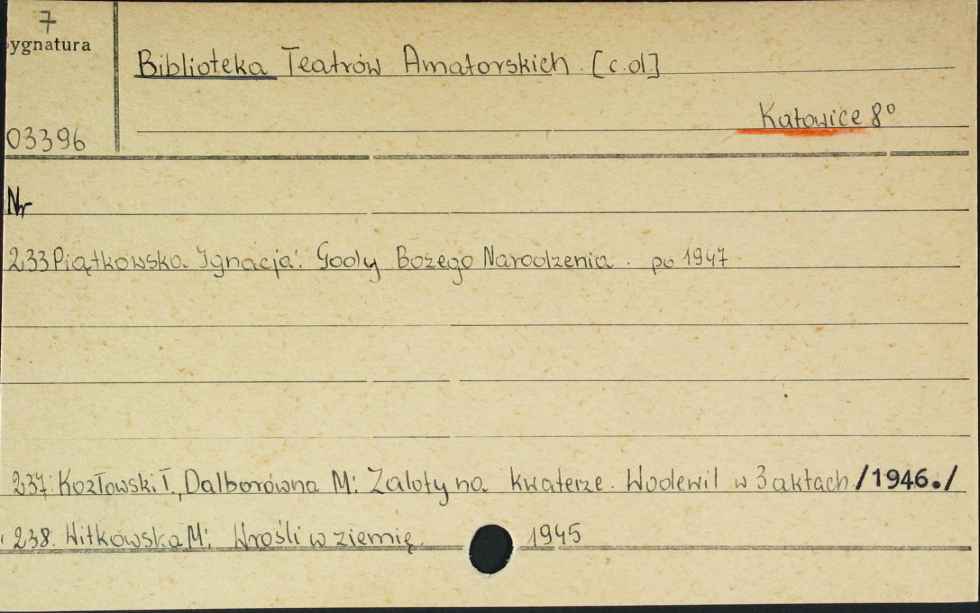 7
ygnatura
Biblioteka Teatrów Amatorskich. [c.d]
Katowice 8°
03396
Nr
233 Piątkowska Ignacja: Gody Bożego Narodzenia. po 1947.
237. Kozłowski T., Dalborówna M: Zaloty na kwaterze. Wodewil w 3 aktach /1946./
238. Witkowska M: Wrośli w ziemię. 1945